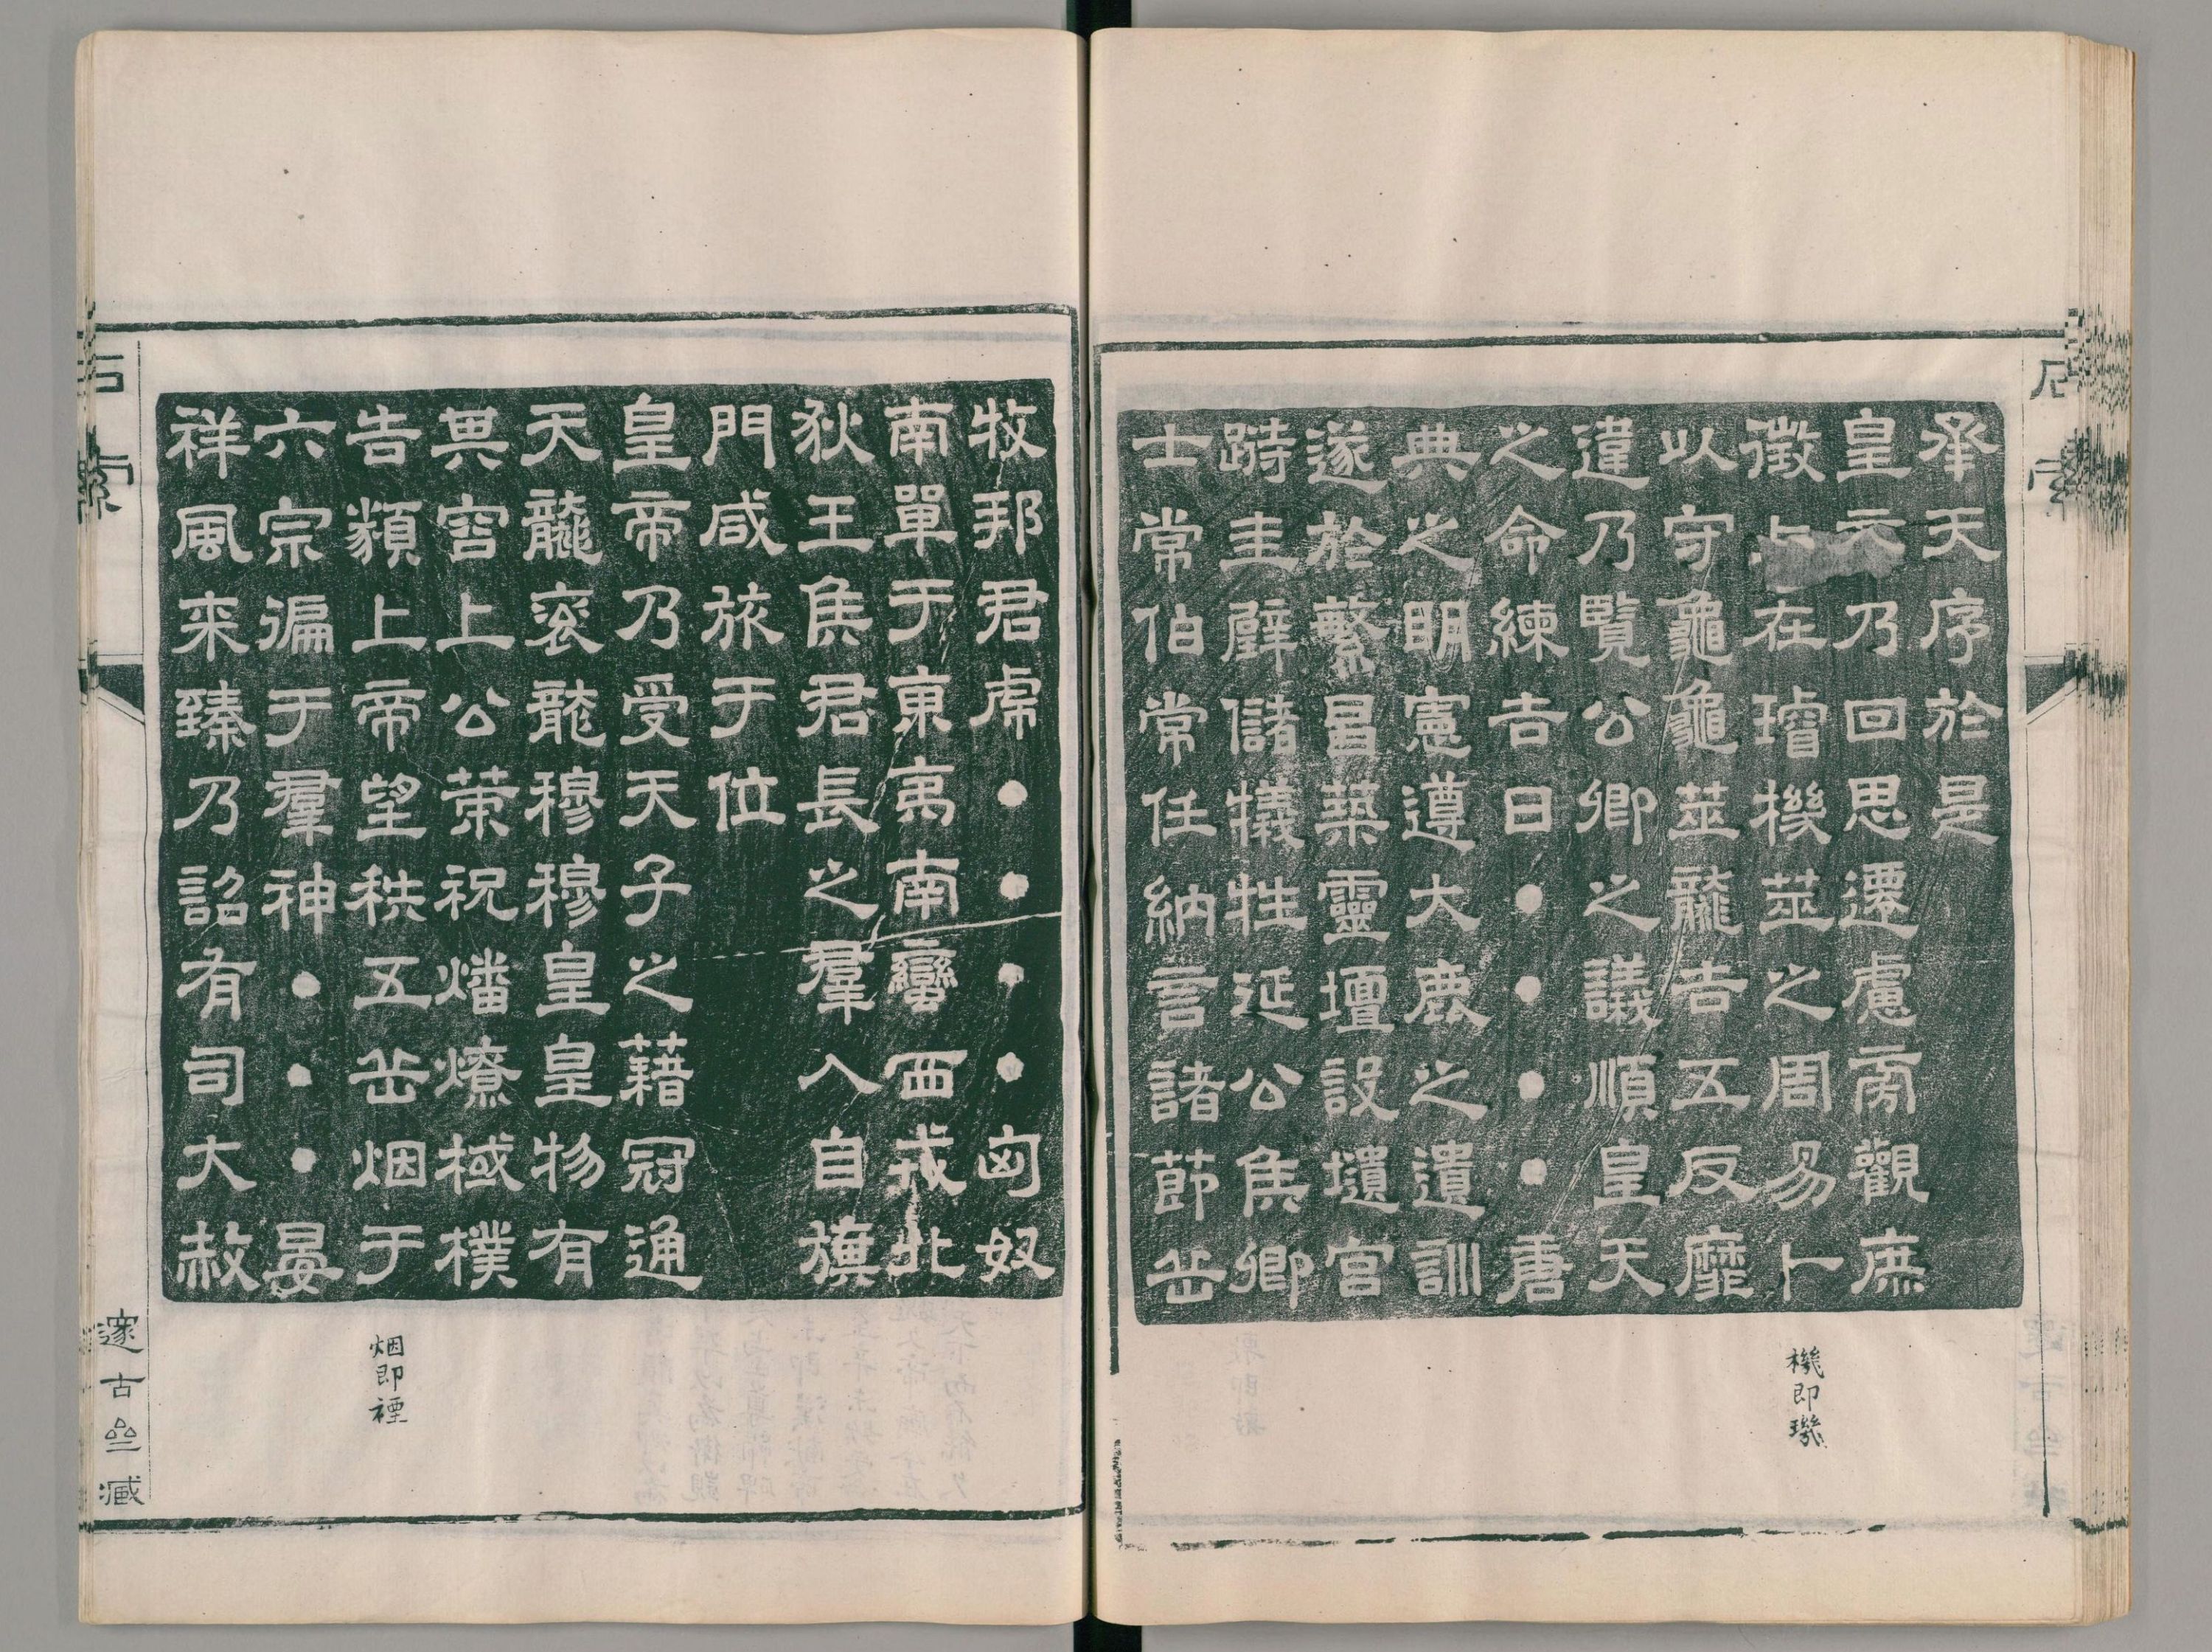 承天序於是
皇乃回思遷慮旁觀庶
徵上在璿機筮之周易卜
以守龜龜筮龓吉五反靡
違乃覽公卿之議順皇天
之命練吉日●●●●唐
典之明憲遵大鹿之遺訓
遂於繁昌築靈壇設壝宮
跱圭璧儲犧牲延公侯卿
士常伯常任納言諸節岳
機即璣
牧邦君虎●●●●匈奴
南單于東夷南蠻西戎北
狄王侯君長之羣入自旗
門咸旅于位
皇帝乃受天子之藉冠通
天龓袞龍穆穆皇皇物有
其容上公策祝燔燎棫樸
告類上帝望秩五岳烟于
六宗徧于羣神●●●晏
祥風来臻乃詔有司大赦
烟即禋
邃古亝藏